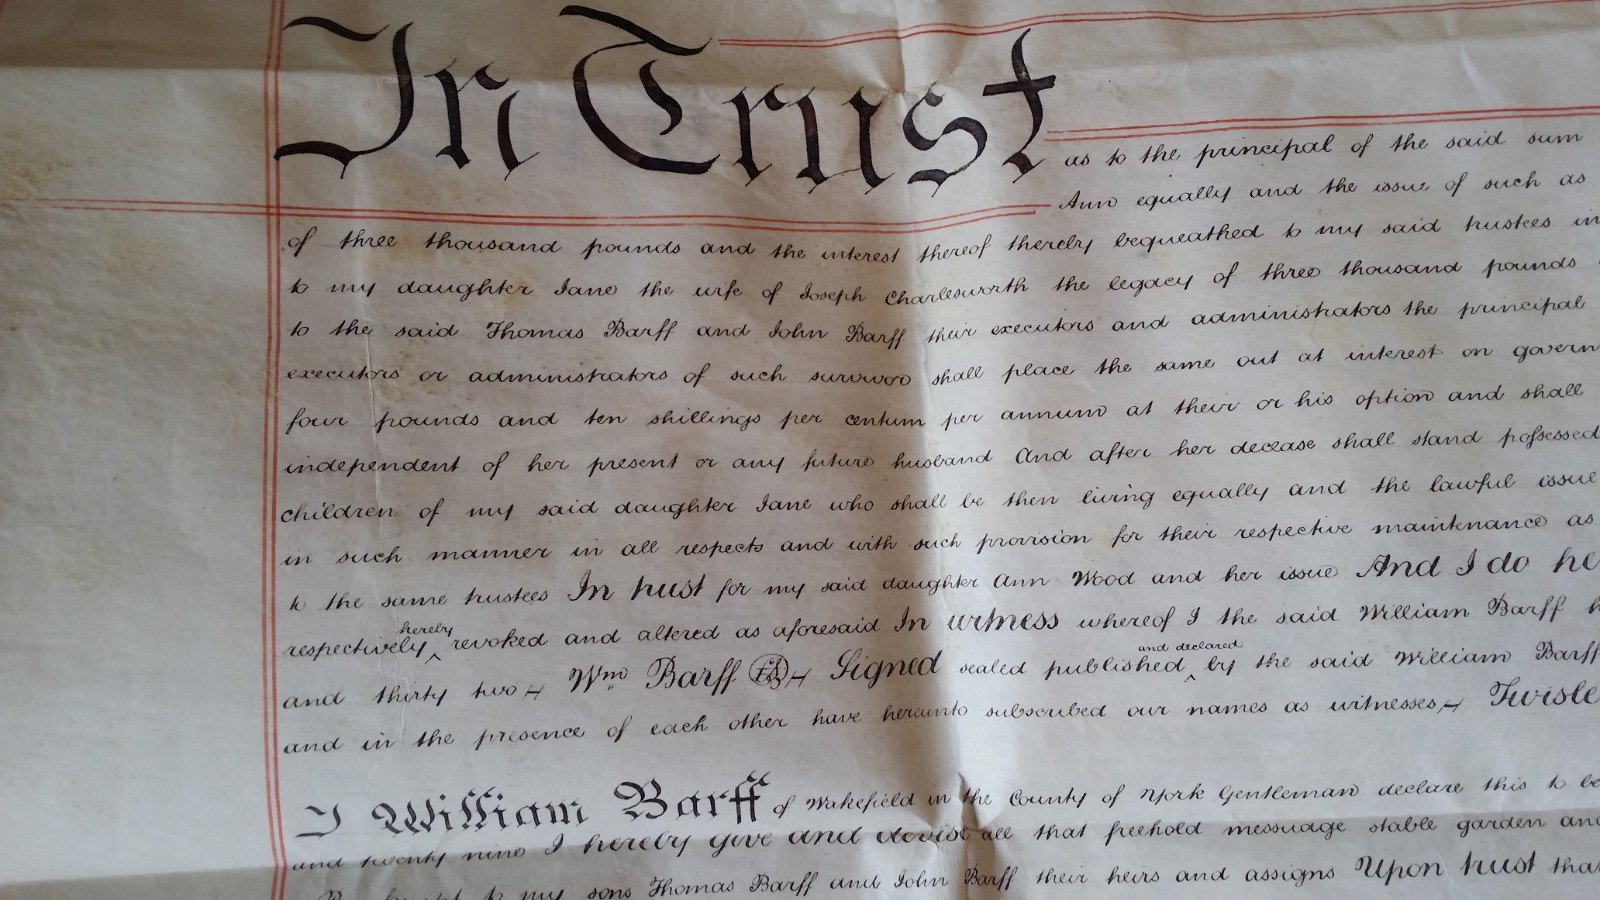 In Trust as to the principal of the said sum
Ann equally and the issue of such as
of three thousand pounds and the interest thereof thereby bequeathed to my said trustees in
to my daughter Jane the wife of Joseph Charlesworth the legacy of three thousand pounds
to the said Thomas Barff and John Barff their executors and administrators the principal
executors or administrators of such survivor shall place the same out at interest on govern
four pounds and ten shillings per centum per annum at their or his option and shall
independent of her present or any future husband And after her decease shall stand possessed
children of my said daughter Jane who shall be then living equally and the lawful issue
in such manner in all respects and with such provision for their respective maintenance as
to the same trustees In trust for my said daughter Ann Wood and her issue And I do he
respectively hereby revoked and altered as aforesaid In witness whereof I the said William Barff h
and thirty two Wm Barff LS Signed sealed published and declared by the said William Barff
and in the presence of each other have hereunto subscribed our names as witnesses Twisle
I William Barff of Wakefield in the County of York Gentleman declare this to be
and twenty nine I hereby give and devise all that freehold messuage stable garden and
to my sons Thomas Barff and John Barff their heirs and assigns Upon trust that